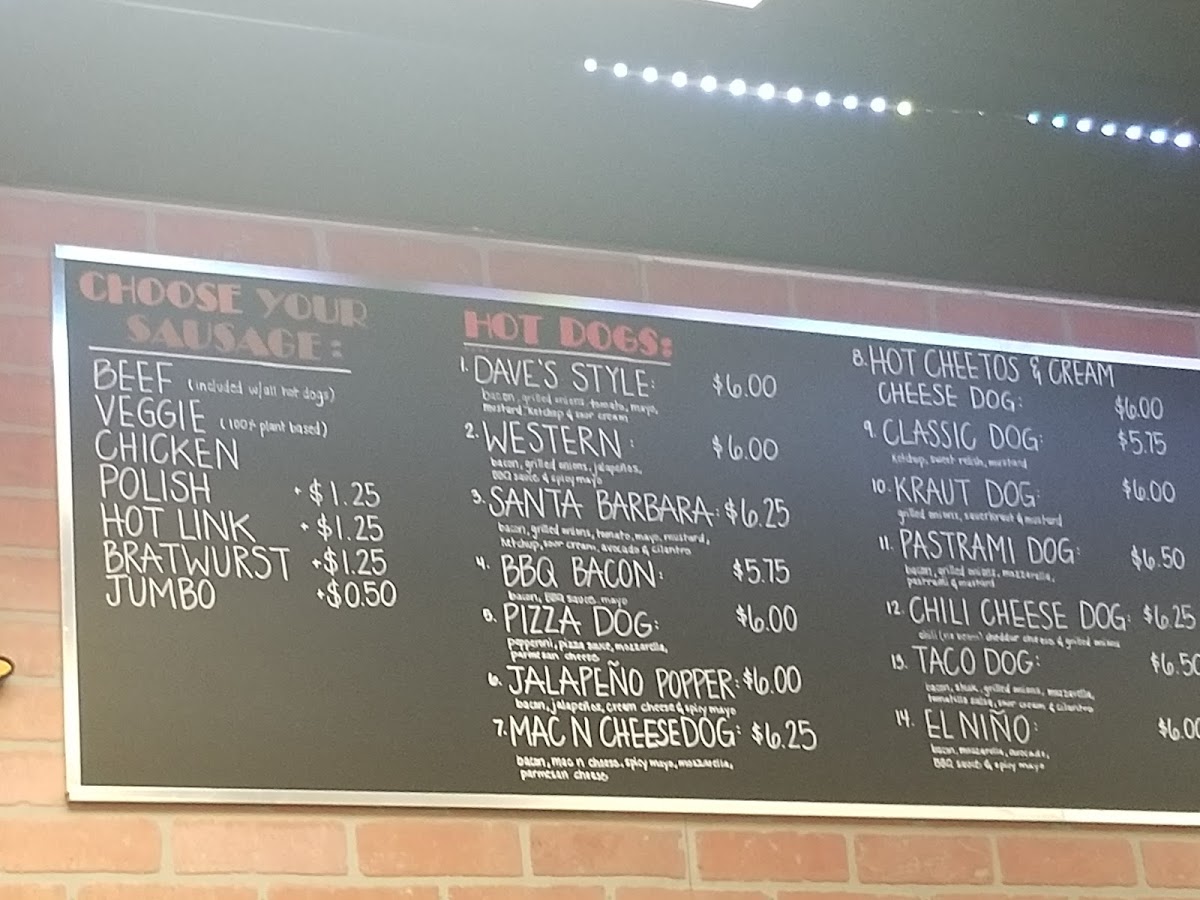 CHOOSE YOUR
SAUSAGE:
BEEF (included w/all hot dogs)
VEGGIE (100% plant based)
CHICKEN
POLISH + $1.25
HOT LINK + $1.25
BRATWURST +$1.25
JUMBO +$0.50
HOT DOGS:
1. DAVE'S STYLE: $6.00
bacon, grilled onions, tomato, mayo,
mustard, ketchup & sour cream
2. WESTERN: $6.00
bacon, grilled onions, jalapeños,
BBQ sauce & spicy mayo
3. SANTA BARBARA: $6.25
bacon, grilled onions, tomato, mayo, mustard,
ketchup, sour cream, avocado & cilantro
4. BBQ BACON: $5.75
bacon, BBQ sauce, mayo
5. PIZZA DOG: $6.00
pepperoni, pizza sauce, mozzarella,
parmesan cheese
6. JALAPEÑO POPPER: $6.00
bacon, jalapeños, cream cheese & spicy mayo
7. MAC N CHEESE DOG: $6.25
bacon, mac n cheese, spicy mayo, mozzarella,
parmesan cheese
8. HOT CHEETOS & CREAM
CHEESE DOG: $6.00
9. CLASSIC DOG: $5.75
ketchup, sweet relish, mustard
10. KRAUT DOG: $6.00
grilled onions, sauerkraut & mustard
11. PASTRAMI DOG: $6.50
bacon, grilled onions, mozzarella,
pastrami & mustard
12. CHILI CHEESE DOG: $6.25
chili (no beans) cheddar cheese & grilled onions
13. TACO DOG: $6.50
bacon, steak, grilled onions, mozzarella,
tomatillo salsa, sour cream & cilantro
14. EL NIÑO: $6.00
bacon, mozzarella, avocado,
BBQ sauce & spicy mayo